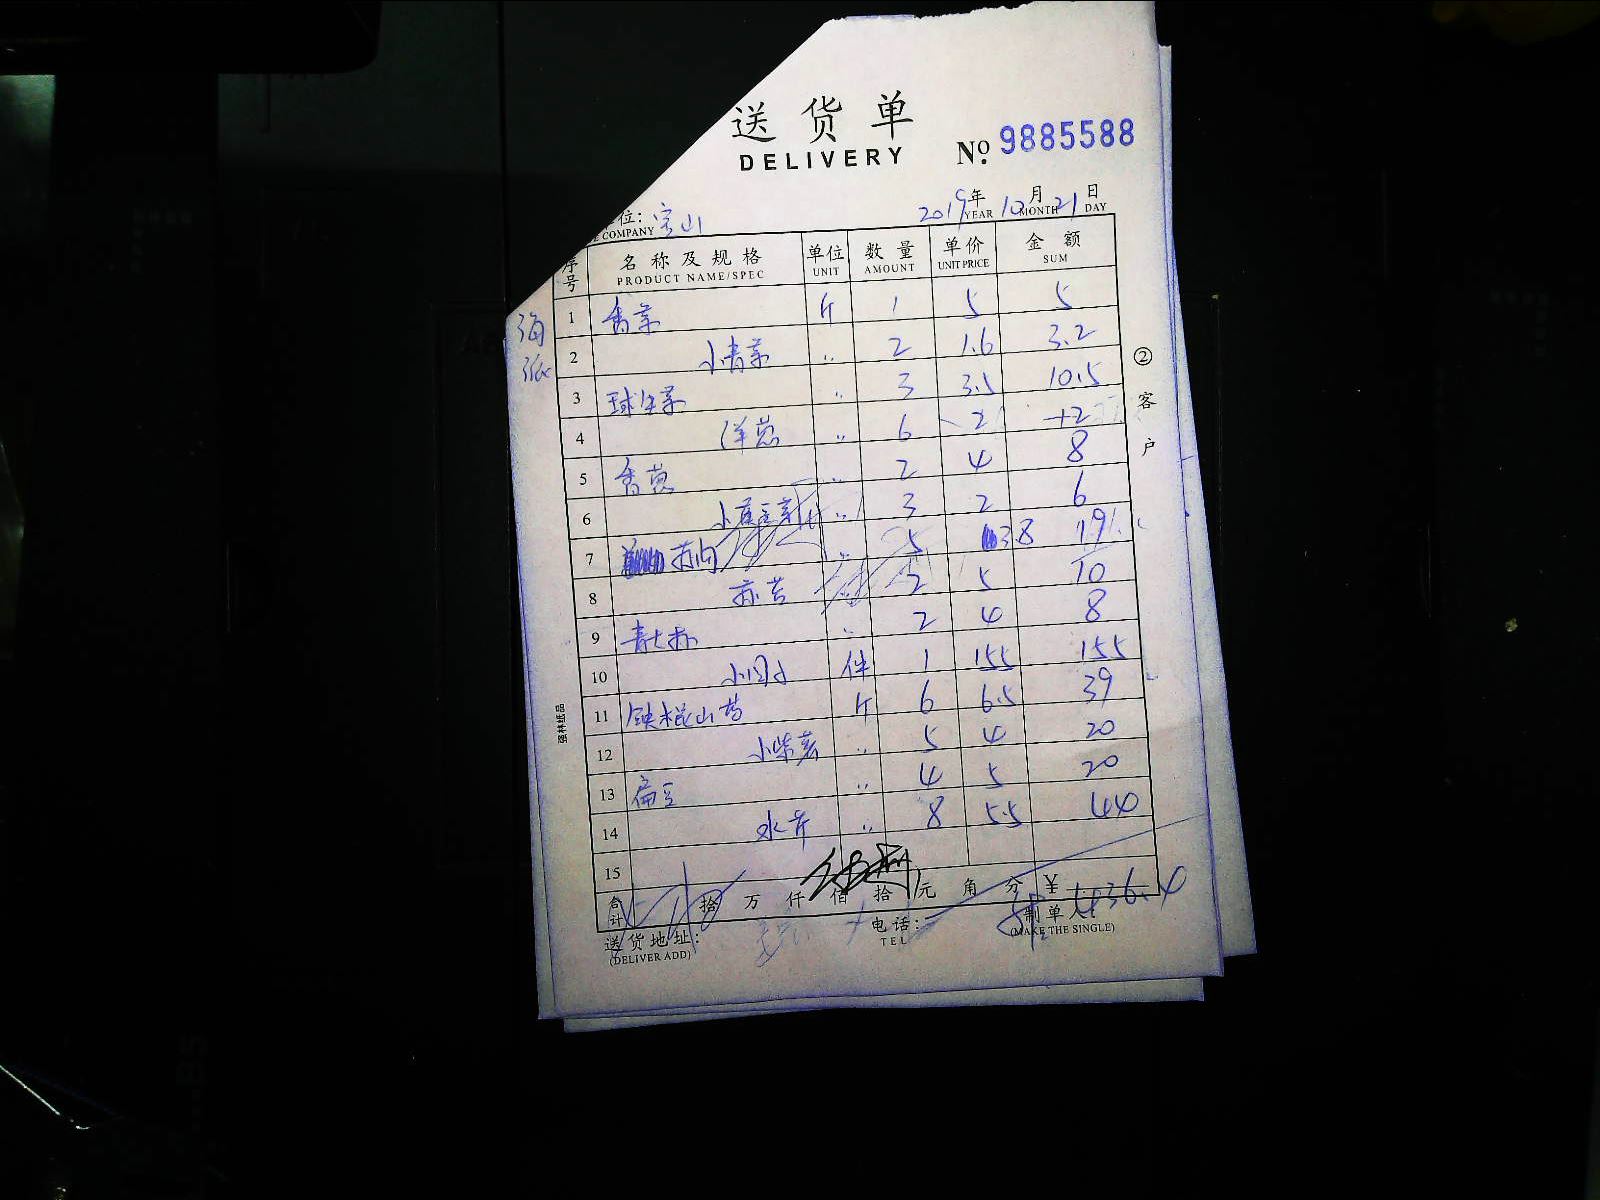 送货单
DELIVERY
No. 9885588
位: 宝山
E COMPANY
2019年 10月 21日
YEAR MONTH DAY
序号 名称及规格 单位 数量 单价 金额
PRODUCT NAME/SPEC UNIT AMOUNT UNIT PRICE SUM
海派
1 香菜 斤 1 5 5
2 小青菜 〃 2 1.6 3.2
3 球生菜 〃 3 3.5 10.5
4 洋葱 〃 6 2 12
5 香葱 〃 2 4 8
6 小黄豆芽 〃 3 2 6
7 〃 5 3.8 19
8 〃 2 5 10
9 〃 2 4 8
10 件 1 155 155
11 铁棍山药 斤 6 6.5 39
12 〃 5 4 20
13 扁豆 〃 4 5 20
14 水芹 〃 8 5.5 44
15
合计 拾 万 仟 佰 拾 元 角 分 ¥ 436.4
送货地址: 电话: 制单人:
(DELIVER ADD) TEL (MAKE THE SINGLE)
②客户
强林纸品